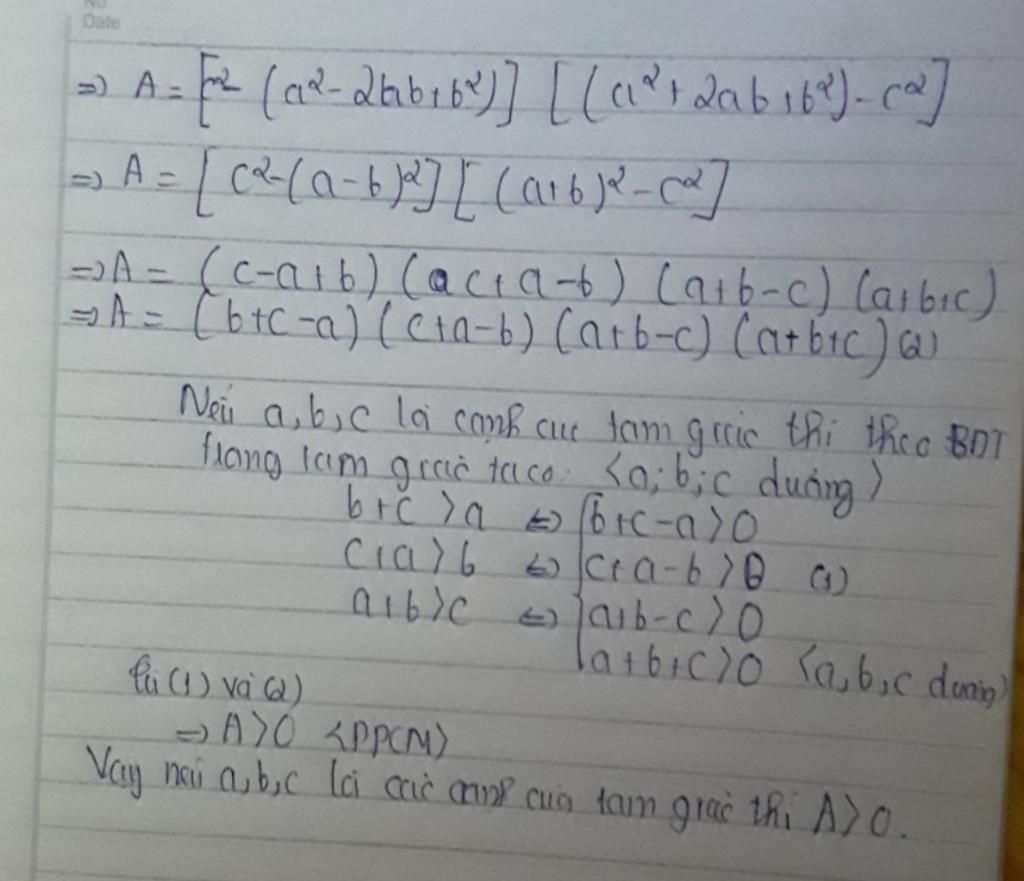 No
Date
⇒ A = [c² (a² - 2ab + b²)] [(a² + 2ab + b²) - c²]
⇒ A = [c² - (a - b)²] [(a + b)² - c²]
⇒ A = (c - a + b) (a c + a - b) (a + b - c) (a + b + c)
⇒ A = (b + c - a) (c + a - b) (a + b - c) (a + b + c) (2)
Nếu a, b, c là cạnh của tam giác thì theo BDT
trong tam giác ta có: <a; b; c dương>
b + c > a ⇔ b + c - a > 0
c + a > b ⇔ c + a - b > 0 (1)
a + b > c ⇔ a + b - c > 0
a + b + c > 0 <a, b, c dương>
từ (1) và (2)
⇒ A > 0 <ĐPCM>
Vậy nếu a, b, c là các cạnh của tam giác thì A > 0.